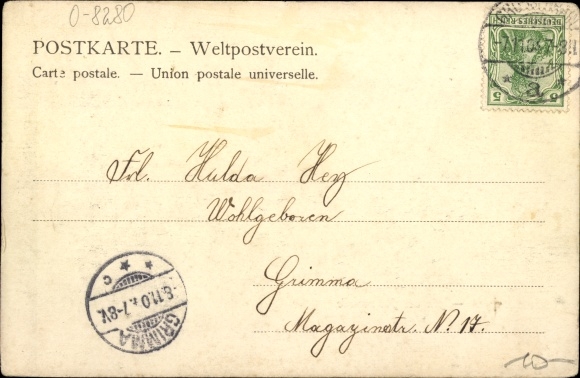 0-8280
POSTKARTE. – Weltpostverein.
Carte postale. — Union postale universelle.
DEUTSCHES REICH
5 5
7-8V
a
Frl. Hulda Hey
Wohlgeboren
Grimma
Magazinstr. N. 17.
GRIMMA
7-8V.
c
10-